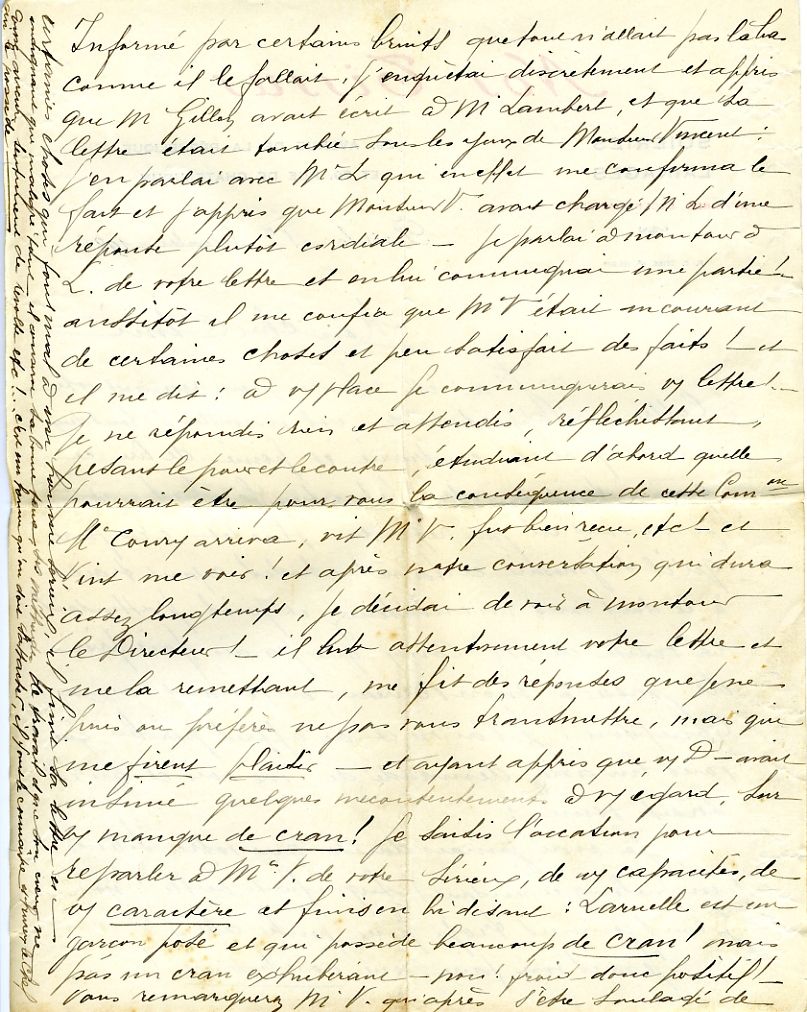 Informé par certains bruits que tout n'allait pas là bas
comme il le fallait, j'enquêtai discrètement et appris
que Mr Gillon avait écrit à Mr Lambert, et que sa
lettre était tombée sous les yeux de Monsieur Vincent :
j'en parlai avec Mr L qui en effet me confirma le
fait et j'appris que Monsieur V. avait chargé Mr L d'une
réponse plutôt cordiale — Je parlai à mon tour à
L. de votre lettre et en lui communiquai une partie !
aussitôt il me confia que Mr V était au courant
de certaines choses et peu satisfait des faits ! et
il me dit : à vy place je communiquerais vy lettre ! —
Je ne répondis rien et attendis, réfléchissant,
pesant le pour et le contre, étudiant d'abord quelle
pourrait être pour vous la conséquence de cette Com on
Mr Coury arriva, vit Mr V. fut bien reçu, etc ! et
vint me voir ! et après notre conversation qui dura
assez longtemps, je décidai de voir à mon tour
le Directeur ! — il lut attentivement votre lettre et
me la remettant, me fit des réponses que je ne
puis ou préfère ne pas vous transmettre, mais qui
me firent plaisir — et ayant appris que vy D — avait
insinué quelques mécontentements à vy égard, sur
vy manque de cran ! Je saisis l'occasion pour
reparler à Mr V. de votre sérieux, de vy capacités, de
vy caractère et finis en lui disant : Laruelle est un
garçon posé et qui possède beaucoup de cran ! mais
pas un cran exhubérant — non ! froid donc positif ! —
Vous remarquerez Mr V. qu'après s'être soulagé de
certaines choses qui font mal à une homme sérieux, il finit sa lettre en
indiquant que malgré tout il conserve sa bonne
le travail et que son cœur ne
sentiment de révolte etc ! .. c'est un homme qui